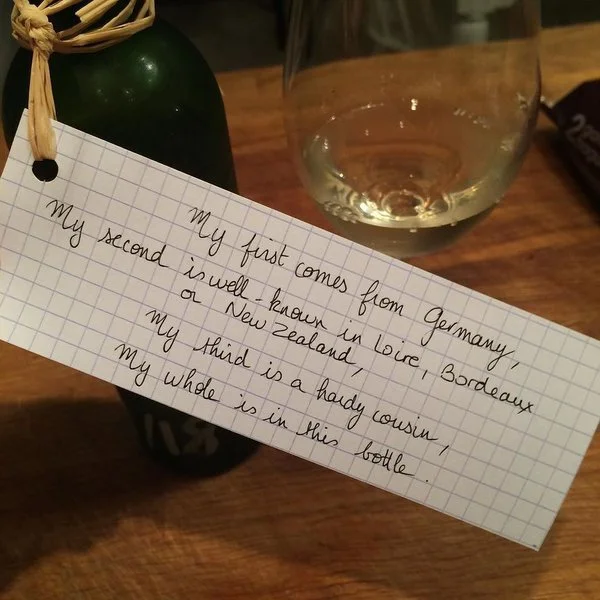 My first comes from Germany,
My second is well-known in Loire, Bordeaux
or New Zealand,
My third is a hardy cousin,
My whole is in this bottle.
2